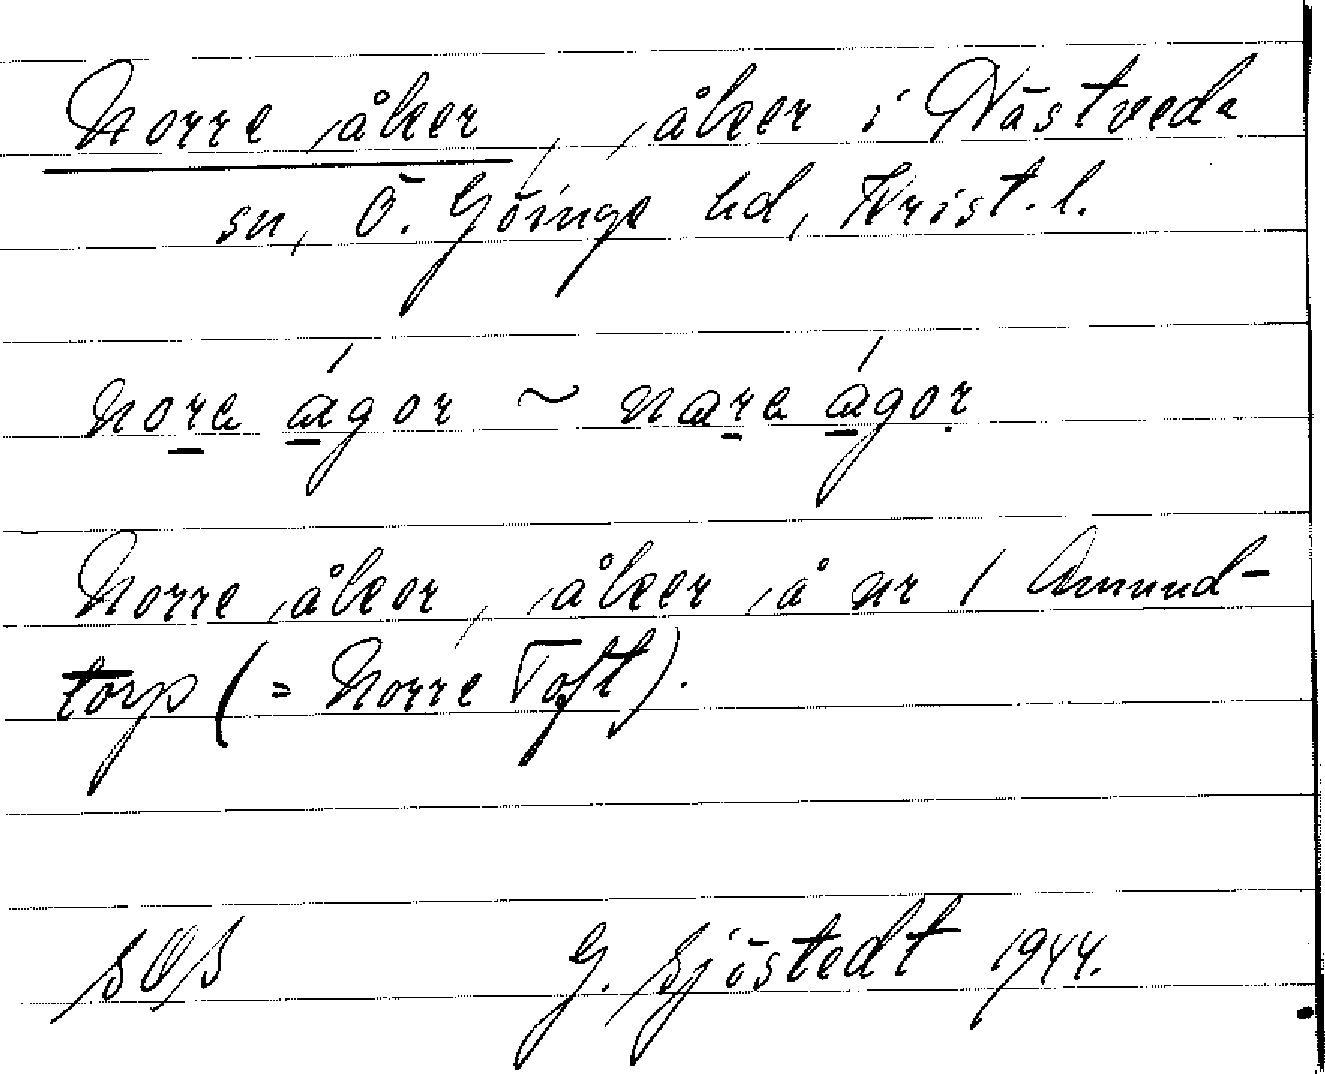 Norre åker, åker i Nästveda
sn, Ö. Göinge hd, Krist. l.
nore ágor ~ nare ágor
Norre åker, åker å nr 1 Amund-
torp (= Norre Toft).
SOS G. Sjöstedt 1944.